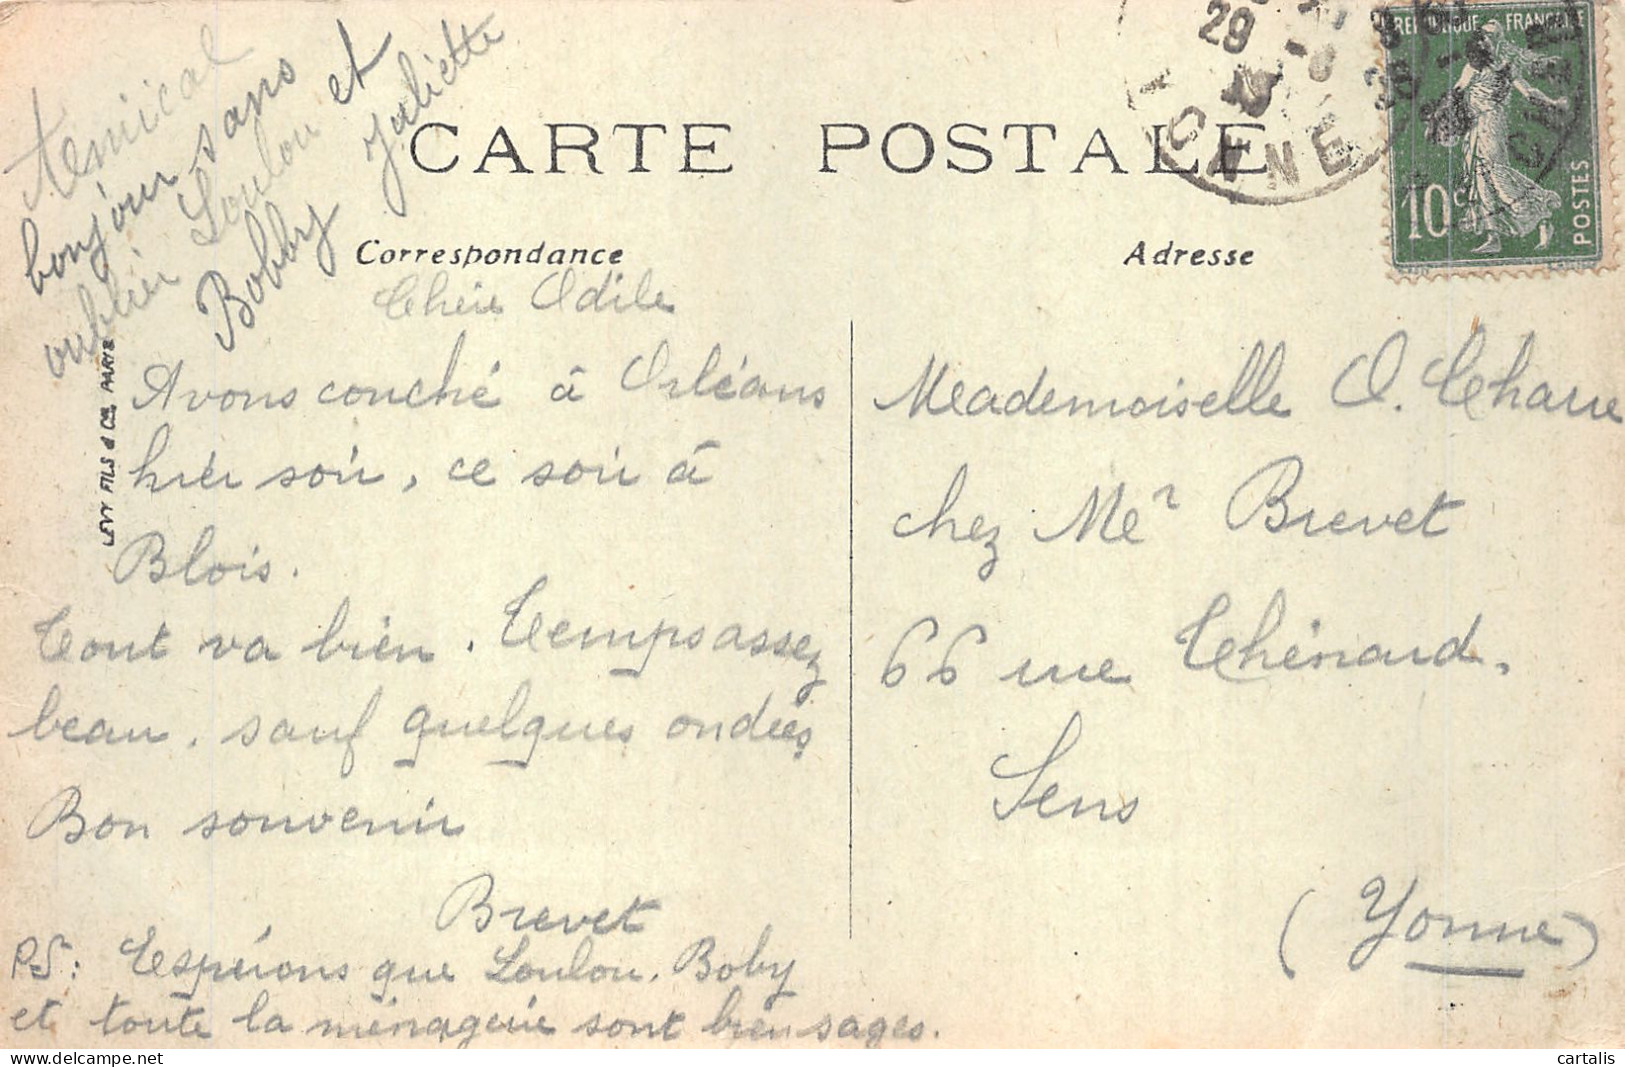 Amical
bonjour sans
oublier Loulou et
Bobby Juliette
CARTE POSTALE
Correspondance
Adresse
29
RÉPUBLIQUE FRANÇAISE
10c
POSTES
LEVY FILS & Cie, PARIS
Chère Odile
Avons couché à Orléans
hier soir, ce soir à
Blois.
Tout va bien. Temps assez
beau. sauf quelques ondées
Bon souvenir
Brevet
PS: Espérons que Loulou. Boby
et toute la ménagerie sont bien sages.
Mademoiselle O. Charre
chez Mr Brevet
66 rue Thénard.
Sens
(Yonne)
cartalis